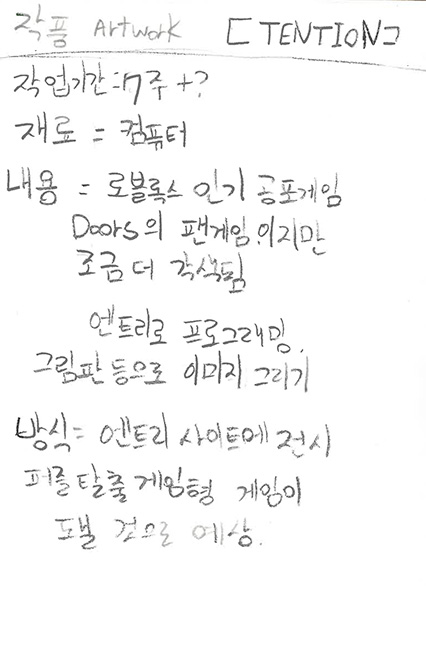 작품 Artwork [TENTION]
작업기간=7주+?
재료 = 컴퓨터
내용 = 로블록스 인기 공포게임
Doors의 팬게임.이지만
조금 더 각색됨
엔트리로 프로그래밍,
그림판 등으로 이미지 그리기
방식= 엔트리 사이트에 전시
퍼즐 탈출게임형 게임이
될 것으로 예상.